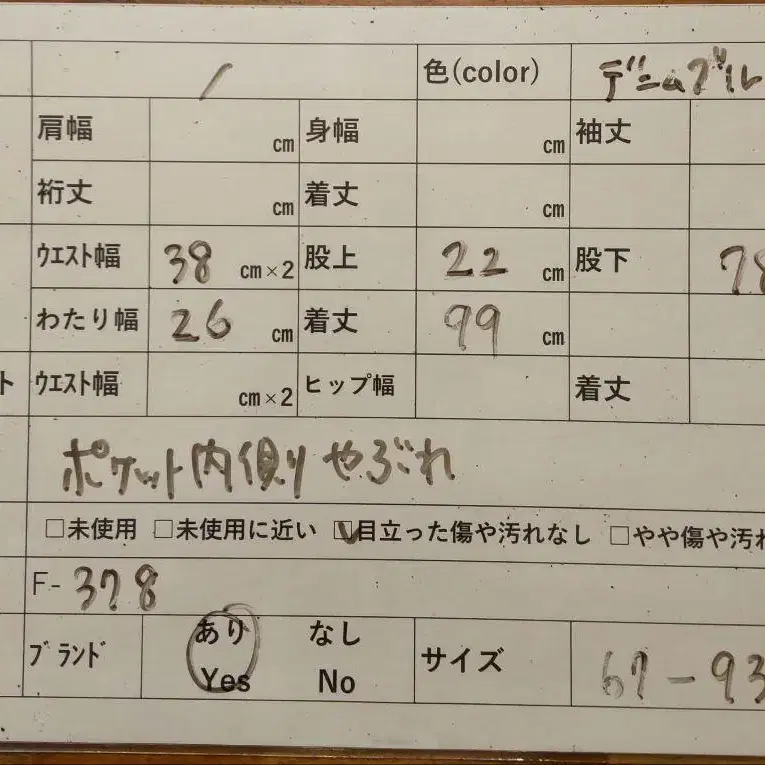 / 色(color) デニムブル
肩幅 cm 身幅 cm 袖丈
裄丈 cm 着丈 cm
ｳｴｽﾄ幅 38 cm×2 股上 22 cm 股下 78
わたり幅 26 cm 着丈 99 cm
ト ｳｴｽﾄ幅 cm×2 ヒップ幅 着丈
ポケット内側やぶれ
□未使用 □未使用に近い ☑目立った傷や汚れなし □やや傷や汚れ
F-378
ブランド あり なし サイズ 67-93
Yes No